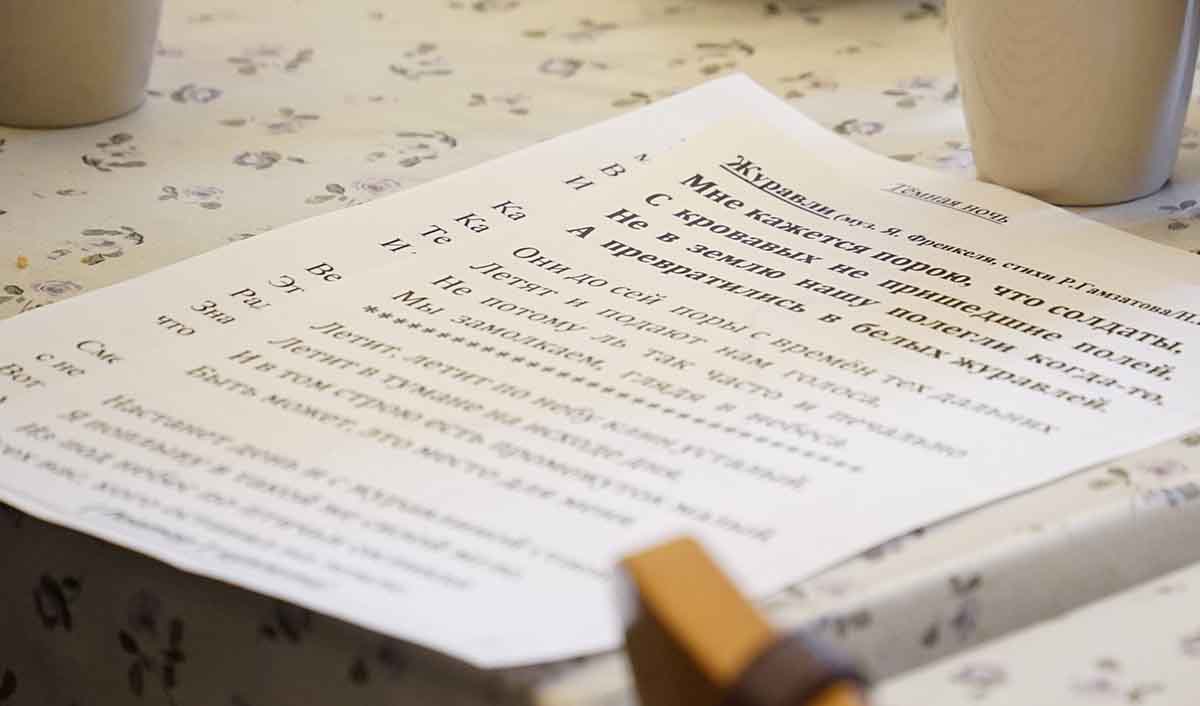 Тёмная ночь
Журавли (муз. Я. Френкеля, стихи Р.Гамзатова)
Мне кажется порою, что солдаты,
С кровавых не пришедшие полей,
Не в землю нашу полегли когда-то,
А превратились в белых журавлей.
Они до сей поры с времён тех дальних
Летят и подают нам голоса,
Не потому ль так часто и печально
Мы замолкаем, глядя в небеса
Летит, летит по небу клин усталый,
Летит в тумане на исходе дня,
И в том строю есть промежуток малый
Быть может, это место для меня
Настанет день и с журавлиной
Я поплыву в такой же сизой мгле
Из под небес по-птичьи окликая
вас, кого оставил на земле
В
И
Ка
Ка
Те
И
Ве
Эт
Зна
что
с не
Вот